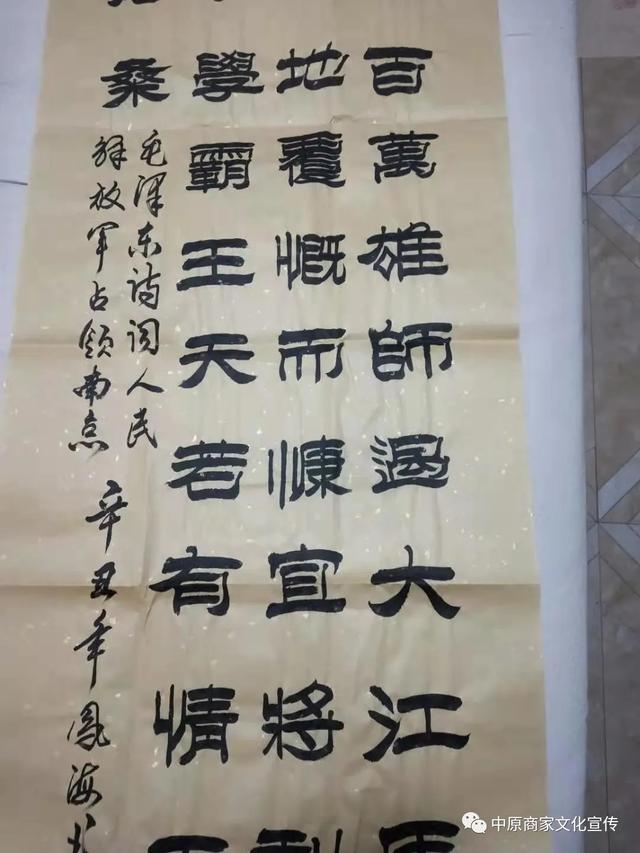 百萬雄師過大江
地覆慨而慷宜將
學霸王天若有情
桑
毛泽东诗词人民
解放军占领南京 辛丑年凤海
中原商家文化宣传